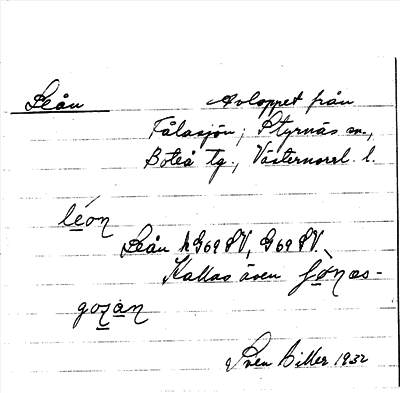 Leån
Avloppet från
Fålasjön; Styrnäs sn.,
Boteå tg., Västernorrl. l.
léo̲n
Leån h G69 SV, G69 SV.
Kallas även
Sven Biller 1932